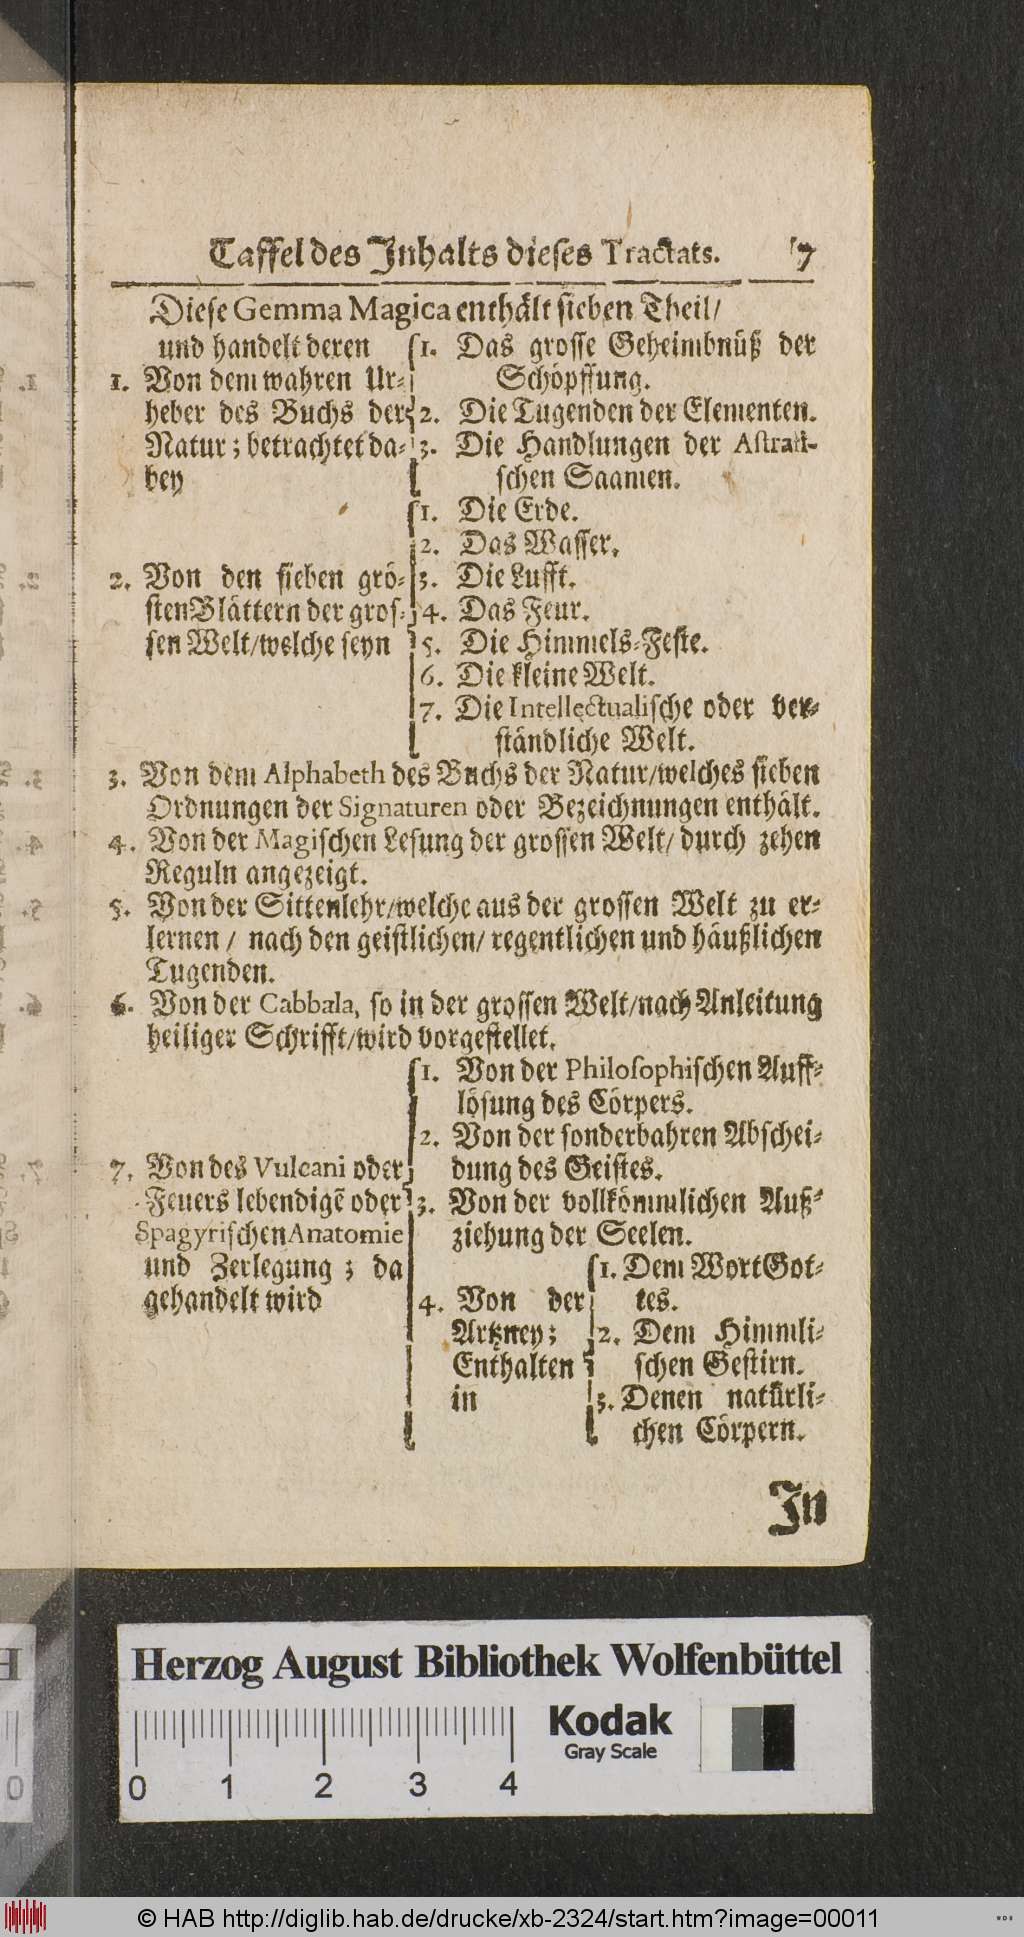 Taffel des Inhalts dieses Tractats. 7
Diese Gemma Magica enthält sieben Theil/
und handelt deren
1. Von dem wahren Ur-
heber des Buchs der
Natur; betrachtet da-
bey
1. Das grosse Geheimbnüß der
Schöpffung.
2. Die Tugenden der Elementen.
3. Die Handlungen der Astrali-
schen Saamen.
2. Von den sieben grö-
sten Blättern der gros-
sen Welt/welche seyn
1. Die Erde.
2. Das Wasser.
3. Die Lufft.
4. Das Feur.
5. Die Himmels-Feste.
6. Die kleine Welt.
7. Die Intellectualische oder ver-
ständliche Welt.
3. Von dem Alphabeth des Buchs der Natur/welches sieben
Ordnungen der Signaturen oder Bezeichnungen enthält.
4. Von der Magischen Lesung der grossen Welt/ durch zehen
Reguln angezeigt.
5. Von der Sittenlehr/welche aus der grossen Welt zu er-
lernen / nach den geistlichen/ regentlichen und häußlichen
Tugenden.
6. Von der Cabbala, so in der grossen Welt/nach Anleitung
heiliger Schrifft/wird vorgestellet.
7. Von des Vulcani oder
Feuers lebendigē oder
Spagyrischen Anatomie
und Zerlegung; da
gehandelt wird
1. Von der Philosophischen Auff-
lösung des Cörpers.
2. Von der sonderbahren Abschei-
dung des Geistes.
3. Von der vollkömmlichen Auß-
ziehung der Seelen.
4. Von der
Artzney;
Enthalten
in
1. Dem Wort Got-
tes.
2. Dem Himmli-
schen Gestirn.
3. Denen natürli-
chen Cörpern.
In
Herzog August Bibliothek Wolfenbüttel
Kodak
Gray Scale
0 1 2 3 4
© HAB http://diglib.hab.de/drucke/xb-2324/start.htm?image=00011